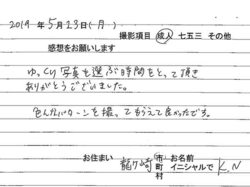 2019年5月23日(月)
撮影項目 成人 七五三 その他
感想をお願いします
ゆっくり写真を選ぶ時間をとって頂き
ありがとうございました。
色んなパターンを撮ってもらえて良かったです。
お住まい 龍ケ崎 市町村 お名前 イニシャルで K.N